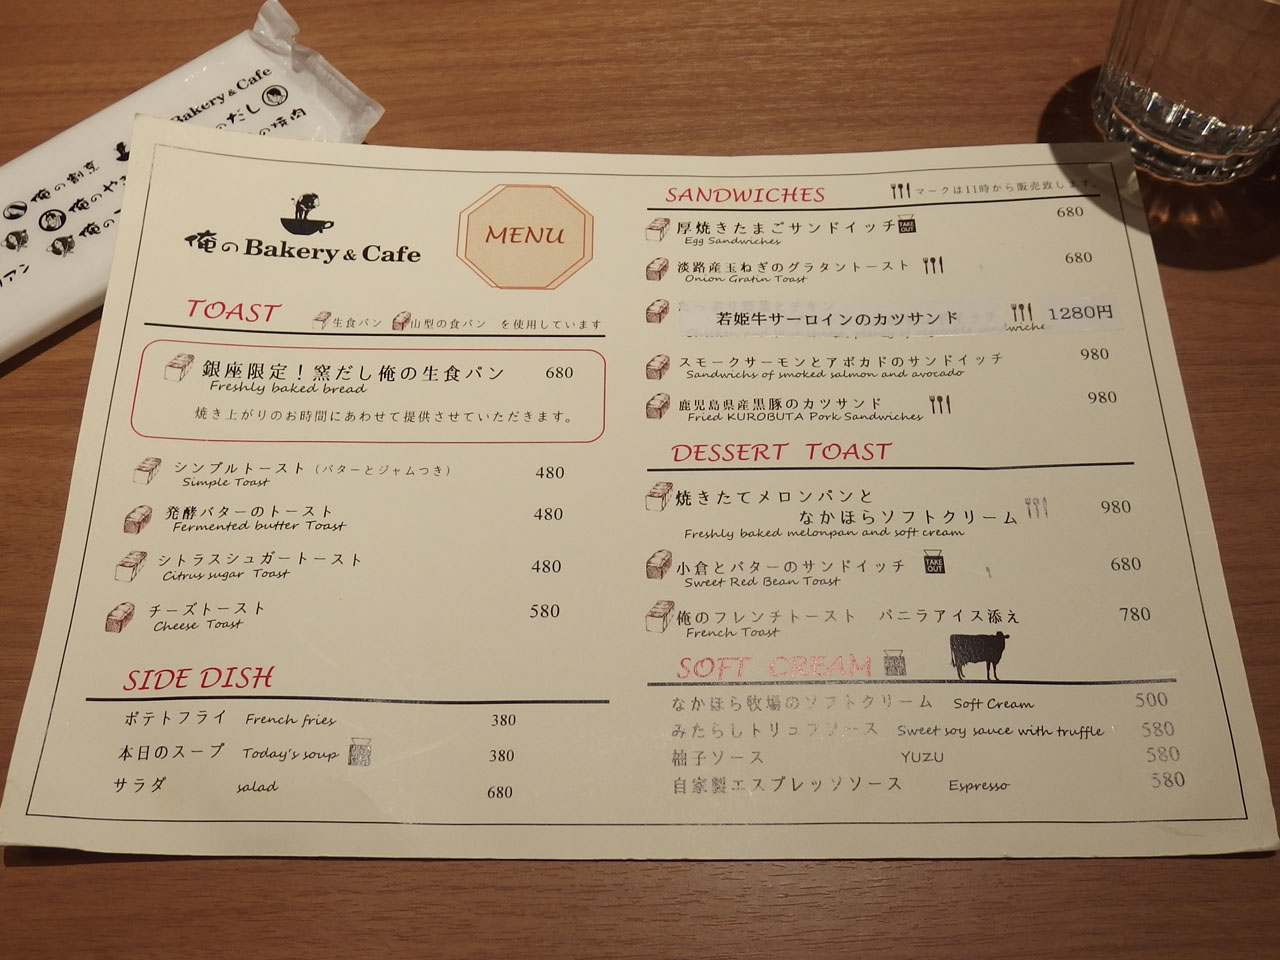 Bakery & Cafe
のだし
の焼肉
俺の割烹
俺のや
俺の
アン
俺のBakery & Cafe
MENU
TOAST
生食パン 山型の食パン を使用しています
銀座限定！窯だし俺の生食パン 680
Freshly baked bread
焼き上がりのお時間にあわせて提供させていただきます。
シンプルトースト（バターとジャムつき） 480
Simple Toast
発酵バターのトースト 480
Fermented butter Toast
シトラスシュガートースト 480
Citrus sugar Toast
チーズトースト 580
Cheese Toast
SIDE DISH
ポテトフライ French fries 380
本日のスープ Today's soup 380
サラダ salad 680
SANDWICHES マークは11時から販売致します。
厚焼きたまごサンドイッチ TAKE OUT 680
Egg Sandwiches
淡路産玉ねぎのグラタントースト 680
Onion Gratin Toast
たっぷり野菜とチキン
若姫牛サーロインのカツサンド 1280円
Chicken and blue cheese, plenty of vegetable sandwiche
スモークサーモンとアボカドのサンドイッチ 980
Sandwichs of smoked salmon and avocado
鹿児島県産黒豚のカツサンド 980
Fried KUROBUTA Pork Sandwiches
DESSERT TOAST
焼きたてメロンパンと
なかほらソフトクリーム 980
Freshly baked melonpan and soft cream
小倉とバターのサンドイッチ TAKE OUT 680
Sweet Red Bean Toast
俺のフレンチトースト バニラアイス添え 780
French Toast
SOFT CREAM
なかほら牧場のソフトクリーム Soft Cream 500
みたらしトリュフソース Sweet soy sauce with truffle 580
柚子ソース YUZU 580
自家製エスプレッソソース Espresso 580